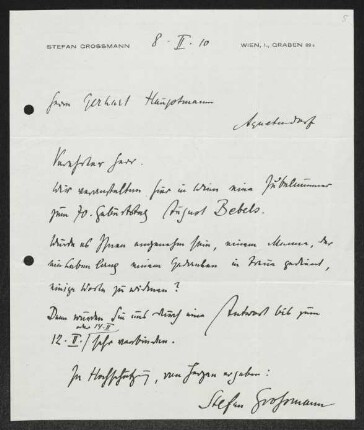 5
STEFAN GROSSMANN 8. II. 10 WIEN, I., GRABEN
Herrn Gerhart Hauptmann
Agnetendorf
Verehrter Herr.
Wir veranstalten hier in Wien eine Jubelnummer
zum 70. Geburtstag August Bebels.
Würde es Ihnen angenehm sein, einem Manne, der
ein Leben lang einem Gedanken in Treue gedient,
einige Worte zu widmen?
Dann würden Sie uns durch eine Antwort bis zum
oder 14. II
12. II. sehr verbinden.
In Hochschätzung, von Herzen ergeben:
Stefan Grossmann